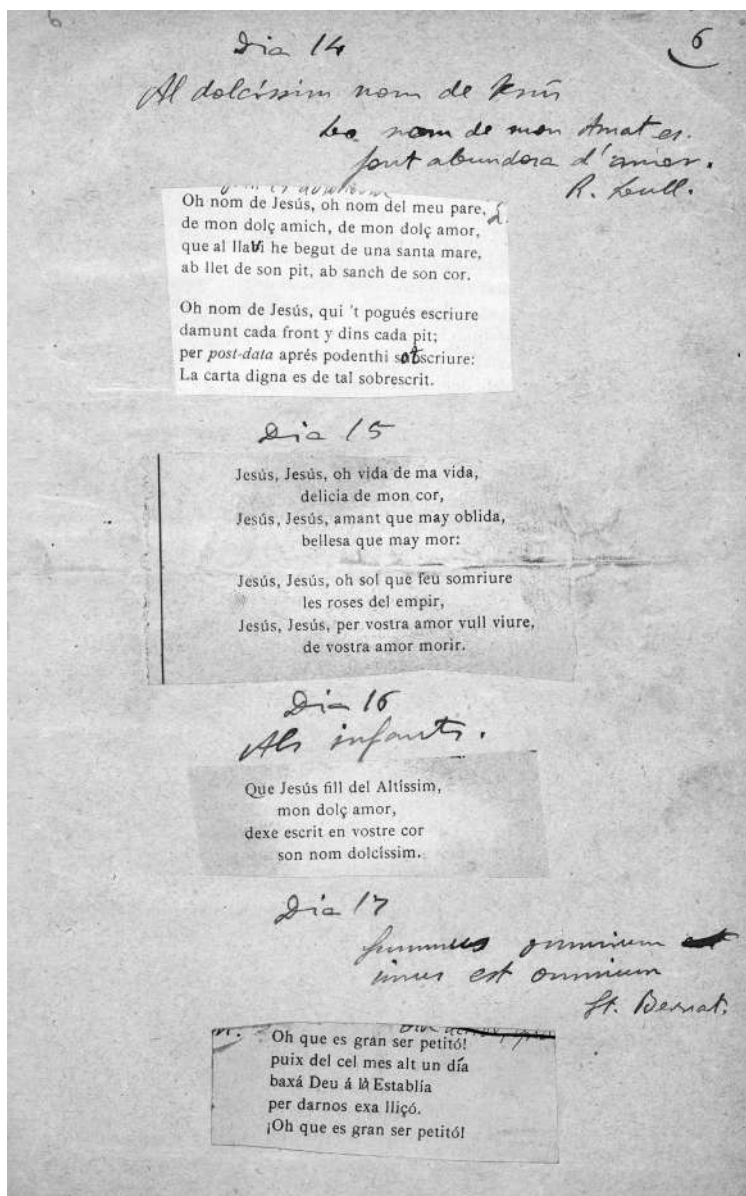 6
Dia 14
Al dolcíssim nom de Jesús
Lo nom de mon Amat es
font abundora d'amor.
R. Lull.
Oh nom de Jesús, oh nom del meu pare,
de mon dolç amich, de mon dolç amor,
que al llavi he begut de una santa mare,
ab llet de son pit, ab sanch de son cor.
Oh nom de Jesús, qui 't pogués escriure
damunt cada front y dins cada pit;
per post-data aprés podenthi sotscriure:
La carta digna es de tal sobrescrit.
Dia 15
Jesús, Jesús, oh vida de ma vida,
delicia de mon cor,
Jesús, Jesús, amant que may oblida,
bellesa que may mor:
Jesús, Jesús, oh sol que feu somriure
les roses del empir,
Jesús, Jesús, per vostra amor vull viure,
de vostra amor morir.
Dia 16
Als infants.
Que Jesús fill del Altíssim,
mon dolç amor,
dexe escrit en vostre cor
son nom dolcíssim.
Dia 17
omnium
unus est omnium
St. Bernat.
Oh que es gran ser petitó!
puix del cel mes alt un día
baxá Deu á la Establía
per darnos exa lliçó.
¡Oh que es gran ser petitó!